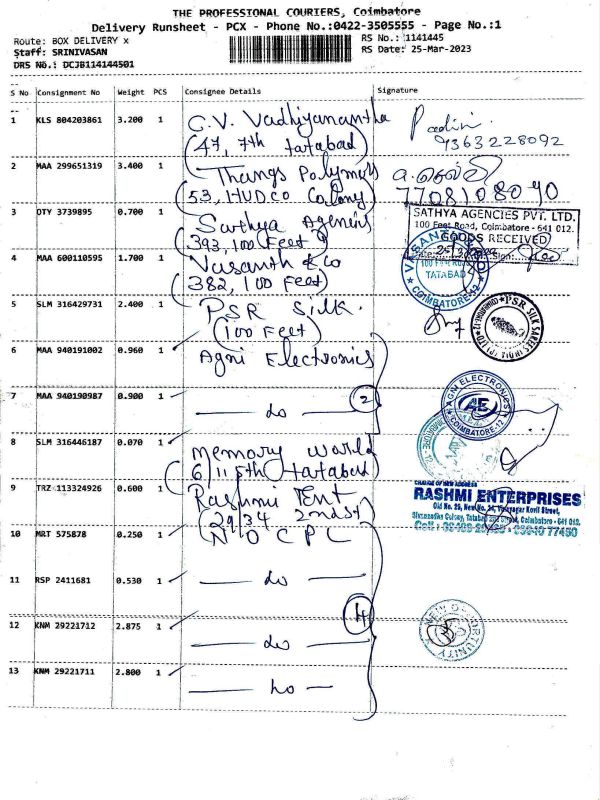 THE PROFESSIONAL COURIERS, Coimbatore
Delivery Runsheet - PCX - Phone No.:0422-3505555 - Page No.:1
Route: BOX DELIVERY x
RS No.: 1141445
Staff: SRINIVASAN
RS Date: 25-Mar-2023
DRS No.: DCJB114144501
S No Consignment No Weight PCS Consignee Details Signature
1 KLS 804203861 3.200 1 C.V. Vadhiyanantha
(47, 7th tatabad) 9363228092
2 MAA 299651319 3.400 1 Thangs Polymers
(53, HUDCO Colony) 7708108090
3 OTY 3739895 0.700 1 Sathya Agencies
(393, 100 Feet)
SATHYA AGENCIES PVT. LTD.
100 Feet Road, Coimbatore - 641 012.
GOODS RECEIVED
4 MAA 600110595 1.700 1 Vasanth & Co
(382, 100 Feet)
TATABAD
COIMBATORE-12
5 SLM 316429731 2.400 1 PSR Silk.
(100 Feet)
PSR SILK SAREES INDIA (P) LTD
6 MAA 940191002 0.960 1 Agni Electronics
7 MAA 940190987 0.900 1 — do — 2
AGNI ELECTRONICS
AE
COIMBATORE-12
8 SLM 316446187 0.070 1 Memory World
6/11 5th tatabad)
9 TRZ 113324926 0.600 1 Rashmi Tent
(29/34 2nd st)
CHANGE OF NEW ADDRESS
RASHMI ENTERPRISES
Colony, Tatabad Coimbatore - 641 012.
10 MRT 575878 0.250 1 N O C P L
11 RSP 2411681 0.530 1 — do —
4
12 KNM 29221712 2.875 1 — do —
NEW OPPORTUNITY
13 KNM 29221711 2.800 1 — do —